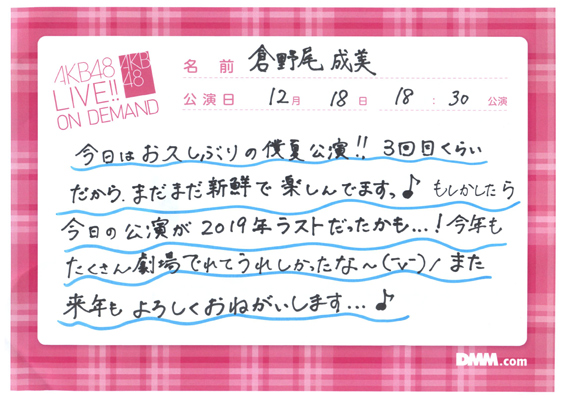 AKB48
LIVE!!
ON DEMAND
AKB
48
名前 倉野尾 成美
公演日 12月 18日 18:30 公演
今日はお久しぶりの僕夏公演!! 3回目くらい
だから、まだまだ新鮮で楽しんでます。♪ もしかしたら
今日の公演が2019年ラストだったかも…!今年も
たくさん劇場でれてうれしかったな〜(ˉvˉ)/ また
来年もよろしくおねがいします…♪
DMM.com